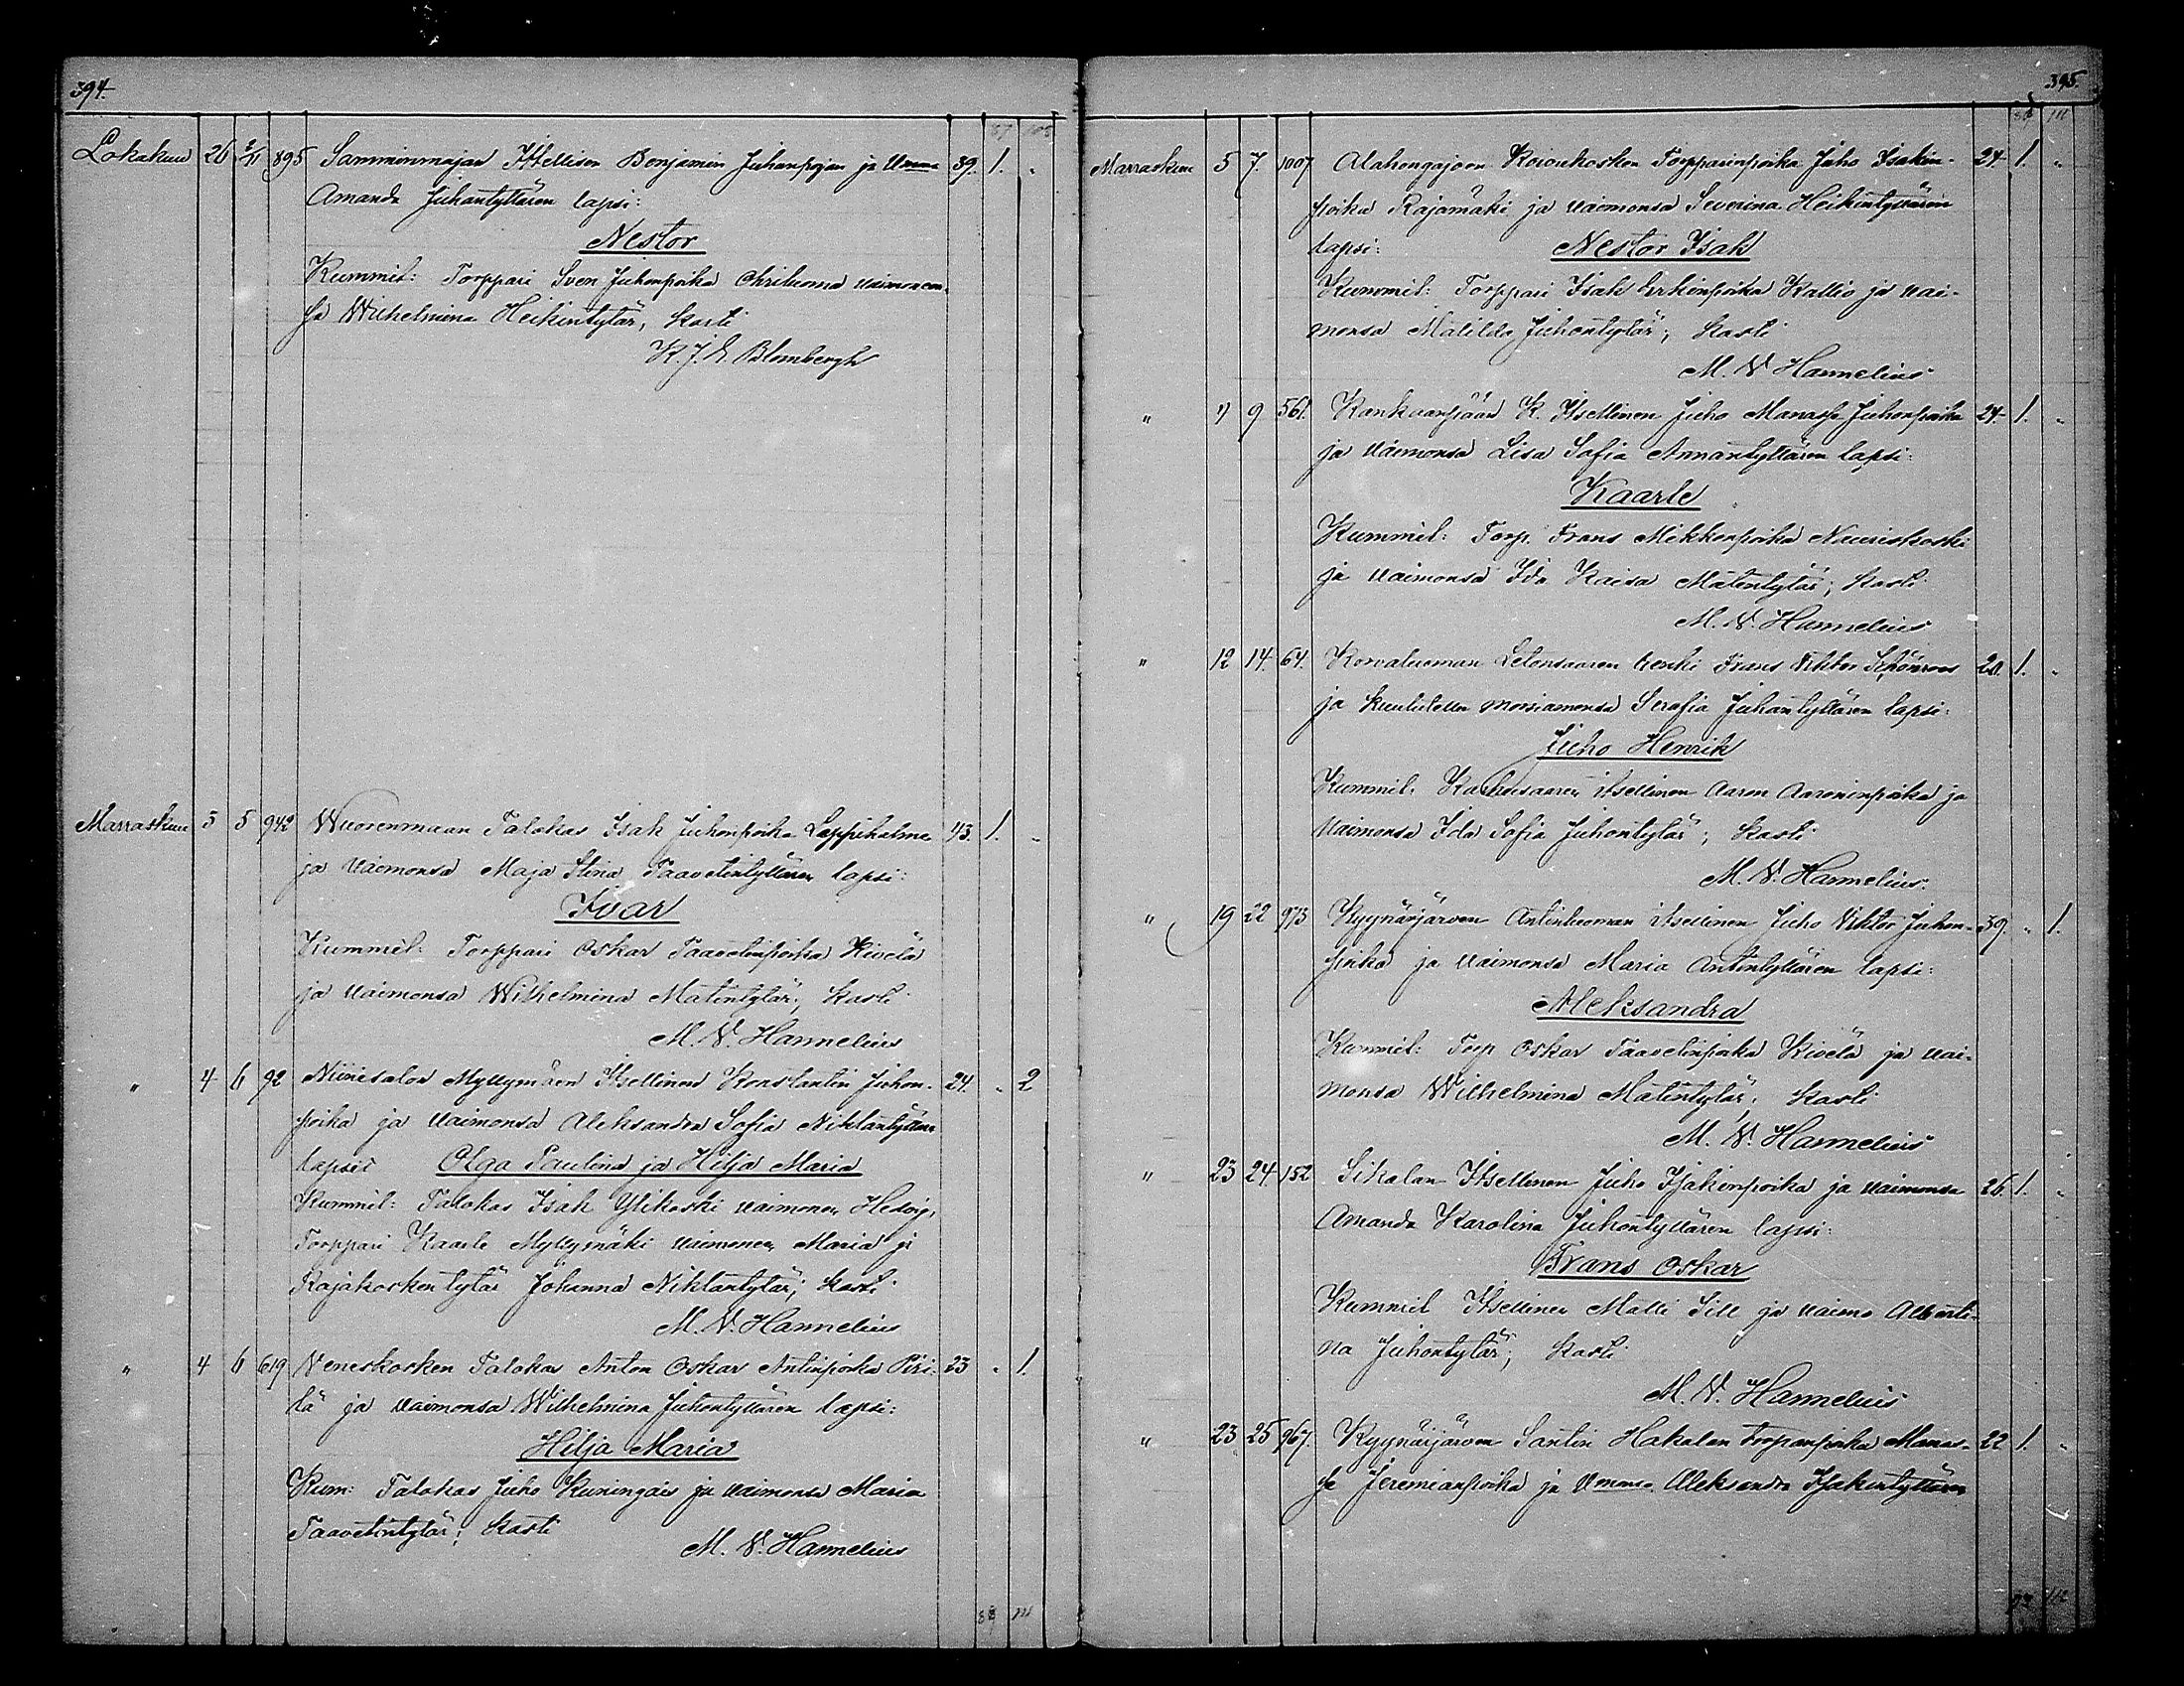 394.
87 108
Lokakuu 26 2/11 895 Samminmajan Itsellisen Benjamin Juhanpojan ja Vmma 39. 1. "
Amanda Juhantyttären lapsi:
Nestor
Kummit: Torppari Sven Juhonpoika Ohriluoma vaimonen-
sa Wilhelmina Heikintytär, Kasti
K. J. E. Blombergh
Marraskuu 3 5 942 Wuorenmaan Talokas Isak Juhonpoika Leppihalme 43. 1. "
ja vaimonsa Maja Stina Taavetintyttären lapsi:
Ivar
Kummit: Torppari Oskar Taavetinpoika Kivelä
ja vaimonsa Wilhelmina Matintytär; Kasti
M. V. Hannelius
" 4 6 92 Niinisalon Myllymäen Itsellinen Konstantin Juhon- 24. " 2
poika ja vaimonsa Aleksandra Sofia Niklantyttären
lapset Olga Paulina ja Hilja Maria
Kummit: Talokas Isak Ylikoski vaimonen Hedvig,
Torppari Kaarle Myllymäki vaimonen Maria ja
Rajakosken tytär Johanna Niklantytär; Kasti
M. V. Hannelius
" 4 6 619 Veneskosken Talokas Anton Oskar Antinpoika Piri- 23 " 1.
lä ja vaimonsa Wilhelmina Juhontyttären lapsi:
Hilja Maria
Kum: Talokas Juho Kuningais ja vaimonsa Maria
Taavetintytär; Kasti
M. V. Hannelius
111
395.
111
Marraskuu 5 7. 1007 Alahongajoen Koivukosken Torpparinpoika Juho Isakin- 24. 1. "
poika Rajamäki ja vaimonsa Severina Heikintyttären
lapsi: Nestor Isak
Kummit: Torppari Isak Erkinpoika Kallio ja vai-
monsa Matilda Juhontytär; Kasti
M. V. Hannelius
" " 9 561. Kankaanpään K. Itsellinen Juho Manasse Juhonpoika 24. 1. "
ja vaimonsa Lisa Sofia Annantyttären lapsi:
Kaarle
Kummit: Torp. Frans Mikkonpoika Nauriskoski
ja vaimonsa Ida Kaisa Matintytär; Kasti
M. V. Hannelius
" 12 14. 64. Korvaluoman Letonsaaren renki Frans Viktor 20. 1. "
ja kuulutettu morsiamensa Serafia Juhantyttären lapsi:
Juho Henrik
Kummit: itsellinen Aaron Aaroninpoika ja
vaimonsa Ida Sofia Juhontytär; Kasti
M. V. Hannelius.
" 19 22 973 Kyynärjärven Antinluoman itsellinen Juho Viktor Juhon- 39. " 1.
poika ja vaimonsa Maria Antintyttären lapsi:
Aleksandra
Kummit: Torp Oskar Taavetinpoika Kivelä ja vai-
monsa Wilhelmina Matintytär. Kasti
M. V. Hannelius
" 23 24 152 Sikalan Itsellinen Juho Isakinpoika ja vaimonsa 26. 1. "
Amanda Karolina Juhontyttären lapsi:
Frans Oskar
Kummit Itsellinen Matti Sill ja vaimo Alberti-
na Juhontytär; Kasti
M. V. Hannelius
" 23 25 967. Kyynärjärven Santin Hakalan torparinpoika Manas- 22 1. "
se Jeremianpoika ja Vmonsa Aleksandra Isakintyttären
112